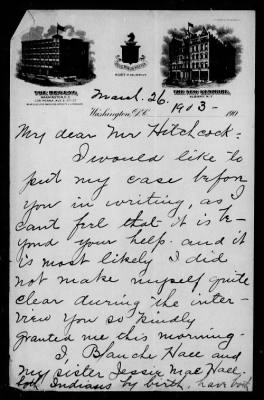 THE REGENT,
WASHINGTON, D.C.
THE NEW KENMORE,
ALBANY, N.Y.
Washington, D.C. March. 26. 1903- 190
My dear Mr Hitchcock:
I would like to
put my case before
you in writing, as I
cant feel that it is be-
yond your help. and it
is most likely I did
not make myself quite
clear during the inter-
view you so kindly
granted me this morning-
I, Blanche Hall and
my sister Jessie Mae Hall,
Indians by birth, have both